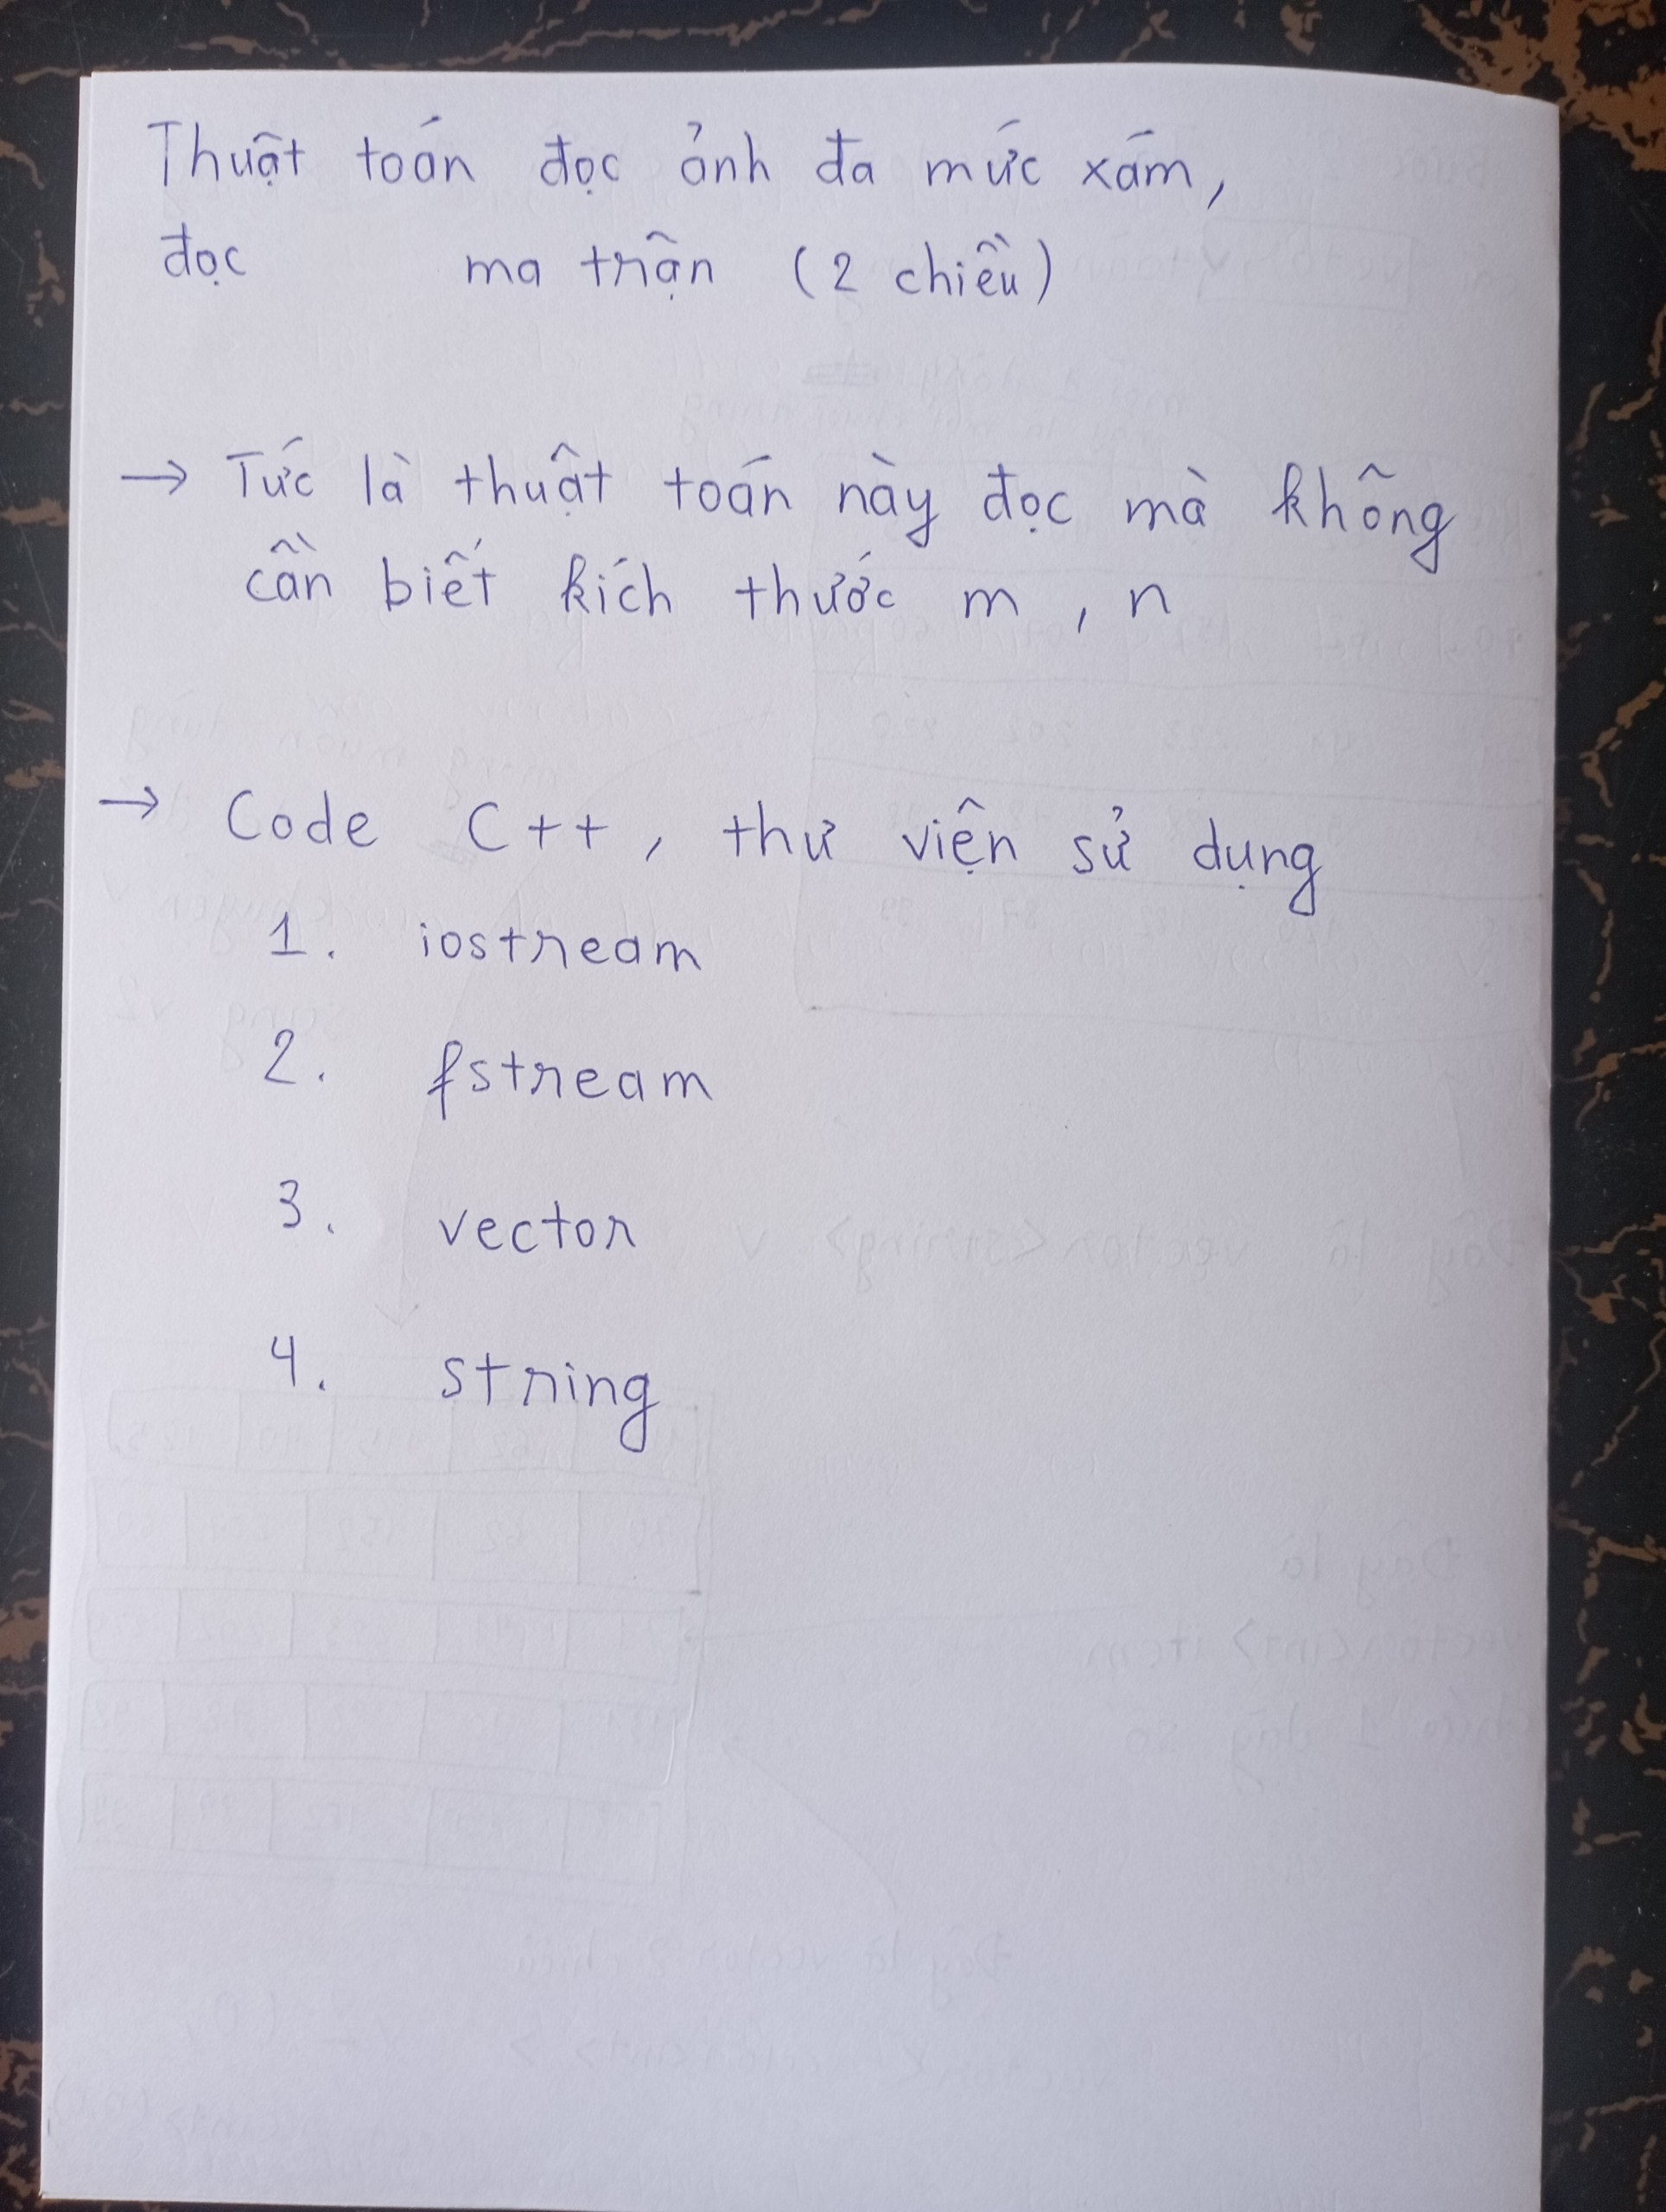 Thuật toán đọc ảnh đa mức xám,
đọc ma trận (2 chiều)
→ Tức là thuật toán này đọc mà không
cần biết kích thước m, n
→ Code C++, thư viện sử dụng
1. iostream
2. fstream
3. vector
4. string